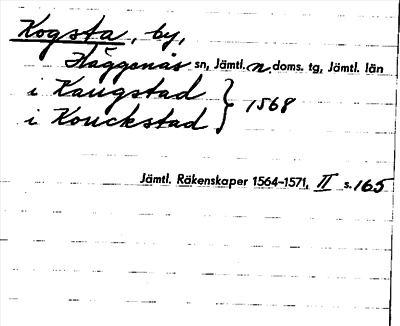 Kogsta, by,
Häggenås sn, Jämtl. n. doms. tg, Jämtl. län
i Kaugstad
i Kouckstad } 1568
Jämtl. Räkenskaper 1564-1571, II s. 165